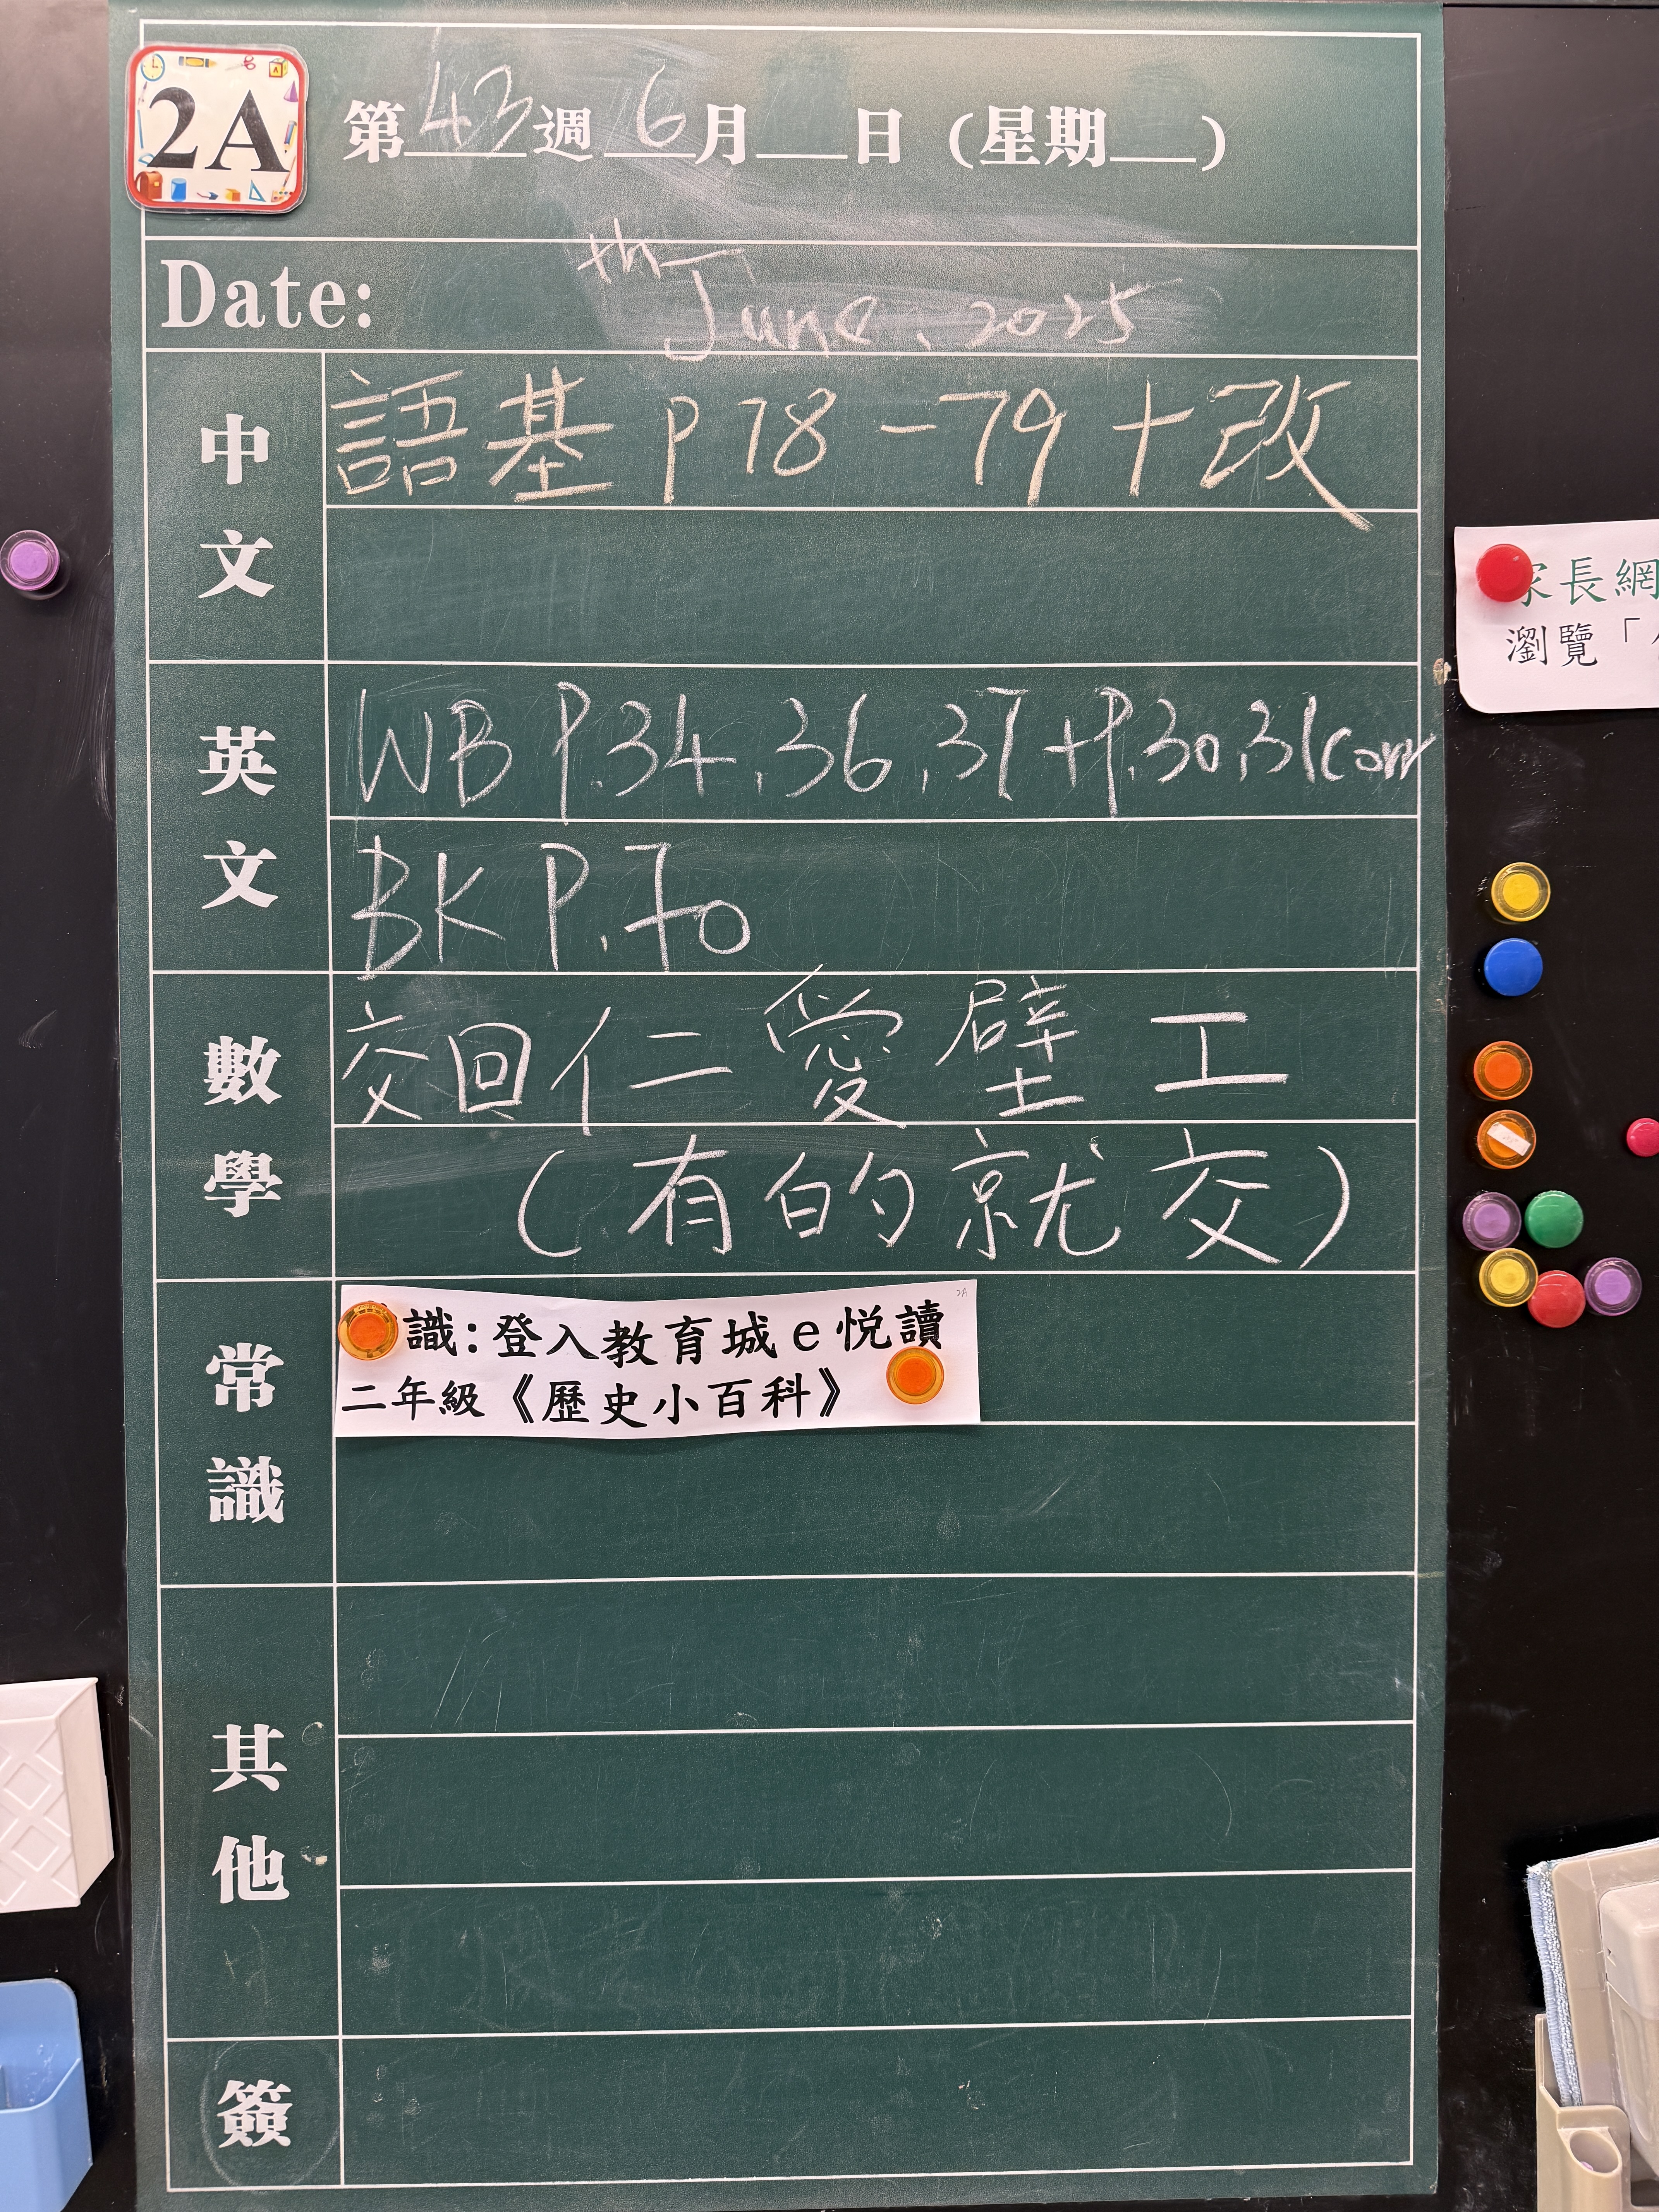 2A
第43週 6月__日 (星期__)
th
Date: June, 2025
中文
語基 P 78 - 79 + 改
英文
WB P.34, 36, 37 + P.30, 31 corr
BK P.70
數學
交回仁愛壁工
(有的就交)
常識
2A
識:登入教育城e悅讀
二年級《歷史小百科》
其他
簽
家長網
瀏覽「